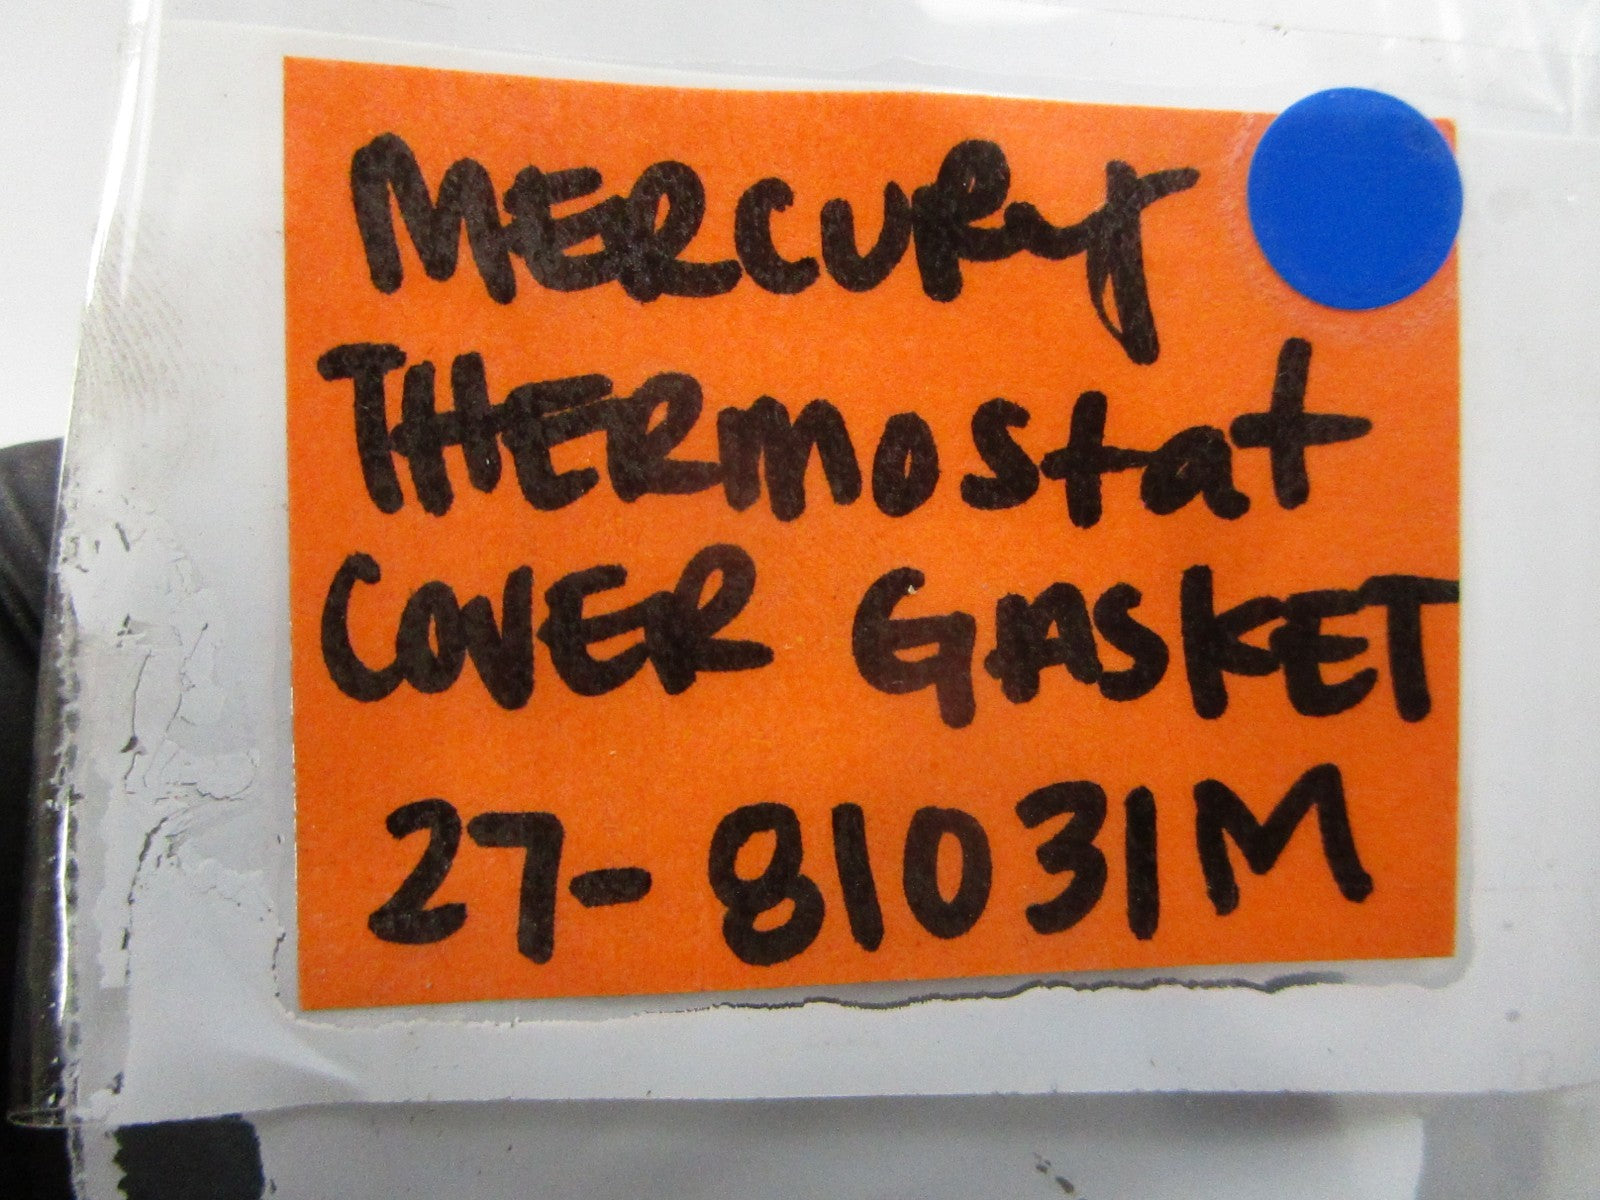 MERCURY
THERMOSTAT
COVER GASKET
27-81031M